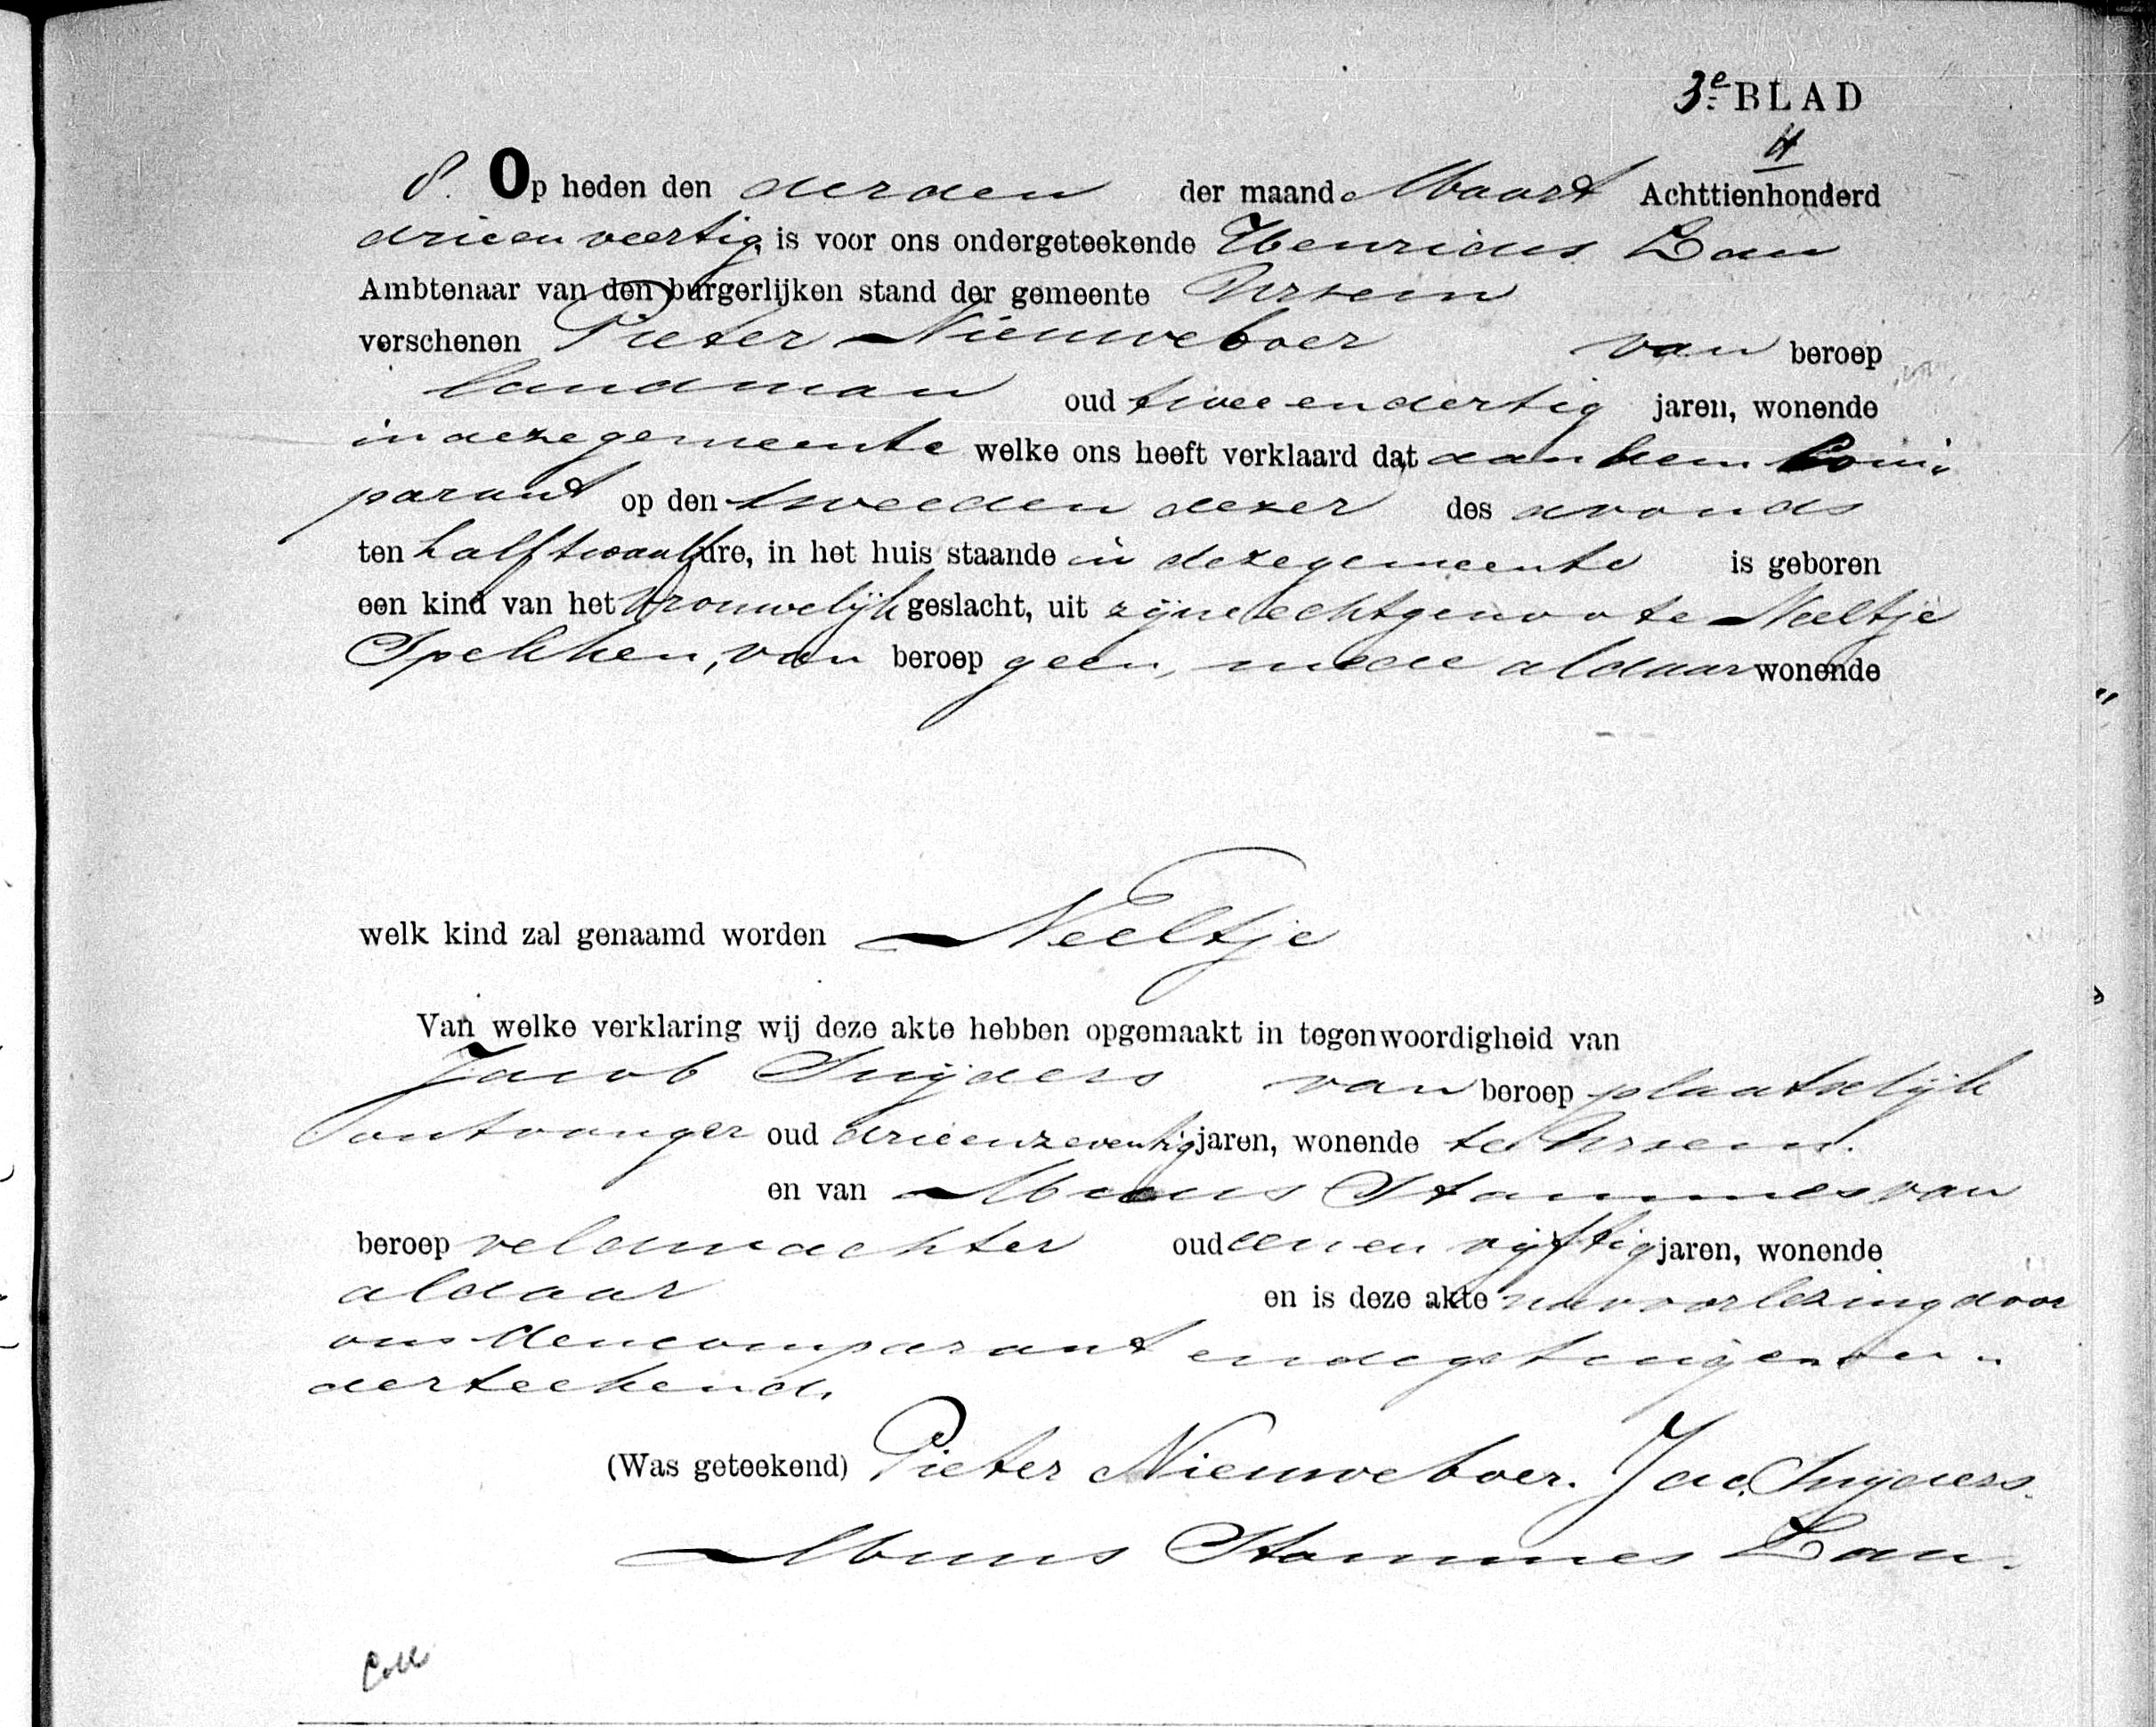 3e BLAD
4
8. Op heden den derden der maand Maart Achttienhonderd
drieenveertig, is voor ons ondergeteekende Henricus Lan
Ambtenaar van den burgerlijken stand der gemeente Ursem
verschenen Pieter Nieuweboer van beroep
landman oud tweeendertig jaren, wonende
in deze gemeente welke ons heeft verklaard dat aan hem Com-
parant op den tweeden dezer des avonds
ten half twaalf ure, in het huis staande in deze gemeente is geboren
een kind van het vrouwelijk geslacht, uit zijne echtgenoote Neeltje
Spekken, van beroep geen, mede aldaar wonende
welk kind zal genaamd worden Neeltje
Van welke verklaring wij deze akte hebben opgemaakt in tegenwoordigheid van
Jacob Snijders van beroep plaatselijk
ontvanger oud drieenzeventig jaren, wonende te Ursem.
en van Stammes van
beroep veldwachter oud een en vijftig jaren, wonende
aldaar en is deze akte na voorlezing door
ons den comparant en de getuigen on-
derteekend.
(Was geteekend) Pieter Nieuweboer. Jac. Snijders.
Stammes Lan.